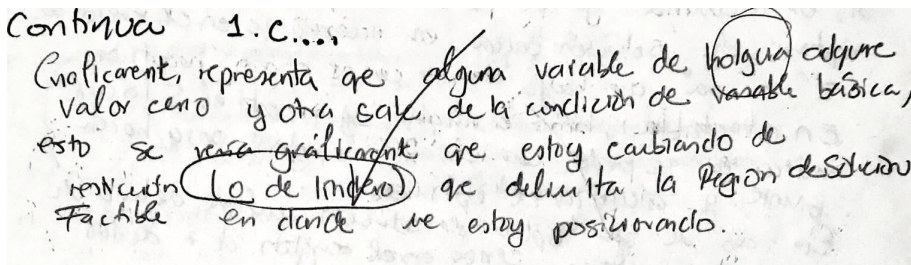 Continua 1.c....
Graficament, representa qe alguna vaiable de holgua adqure
valor ceno y otra sale de la condición de vasable básica,
esto se gráficament qe estoy cambiando de
restricción (o de lindero) qe delimita la Region de Solución
Factible en donde me estoy posicionando.